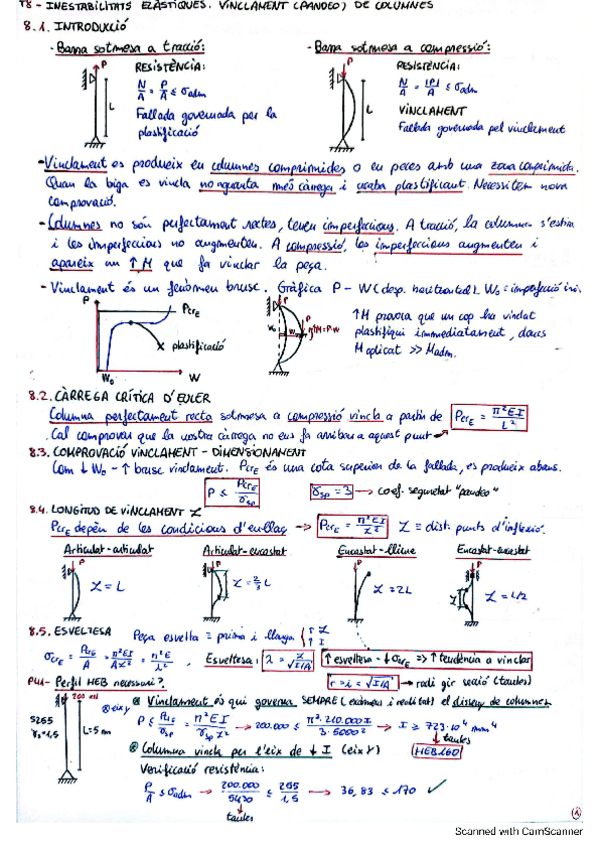 T8 - INESTABILITATS ELÀSTIQUES. VINCLAMENT (PANDEO) DE COLUMNES
8.1. INTRODUCCIÓ
· Barra sotmesa a tracció:
RESISTÈNCIA:
N/A = P/A ≤ σadm
Fallada governada per la
plastificació
P
L
· Barra sotmesa a compressió:
RESISTÈNCIA:
N/A = |P|/A ≤ σadm
VINCLAMENT
Fallada governada pel vinclament
P
L
- Vinclament es produeix en columnes comprimides o en peces amb una zona comprimida.
Quan la biga es vincla no aguanta més càrrega i acaba plastificant. Necessitem nova
comprovació.
- Columnes no són perfectament rectes, tenen imperfeccions. A tracció, la columna s'estira
i les imperfeccions no augmenten. A compressió, les imperfeccions augmenten i
apareix un ↑M que fa vinclar la peça.
- Vinclament és un fenòmen brusc. Gràfica P - W (desp. horitzontal). W₀ = imperfecció ini.
P
PcrE
plastificació
W₀
W
P
↑M = P·W
↑M provoca que un cop ha vinclat
plastifiqui immediatament, doncs
Maplicat >> Madm.
8.2. CÀRREGA CRÍTICA D'EULER
Columna perfectament recta sotmesa a compressió vincla a partir de PcrE = π²EI/L²
. Cal comprovar que la nostra càrrega no ens fa arribar a aquest punt
8.3. COMPROVACIÓ VINCLAMENT - DIMENSIONAMENT
Com ↓W₀ - ↑ brusc vinclament. PcrE és una cota superior de la fallada, es produeix abans.
P ≤ PcrE/γsp
γsp = 3 → coef. seguretat "pandeo"
8.4. LONGITUD DE VINCLAMENT Z
PcrE depèn de les condicions d'enllaç → PcrE = π²EI/Z² Z ≡ dist. punts d'inflexió.
Articulat-articulat
Articulat-encastat
Encastat-lliure
Encastat-encastat
Z = L
Z = 2/3 L
Z = 2L
Z = L/2
8.5. ESVELTESA
Peça esvelta = prima i llarga ↑Z ↑I
σcrE = PcrE/A = π²EI/AZ² = π²E/λ², Esveltesa: λ = Z/√(I/A)
↑esveltesa - ↓σcrE => ↑tendència a vinclar
r = i = √(I/A) → radi gir secció (taules)
P41- Perfil HEB necessari?
200 kN
S265
γs=1,5
L=5m
eix y
Vinclament és qui governa SEMPRE (exàmens i realitat) el disseny de columnes
P ≤ PcrE/γsp = π²EI/γsp Z² → 200.000 ≤ π²·210.000 I/3·5000² → I ≥ 723·10⁴ mm⁴
taules
HEB160
Columna vincla per l'eix de ↓I (eix Y)
Verificació resistència:
P/A ≤ σadm → 200.000/5430 ≤ 255/1,5 → 36,83 ≤ 170 ✓
taules
1
Scanned with CamScanner